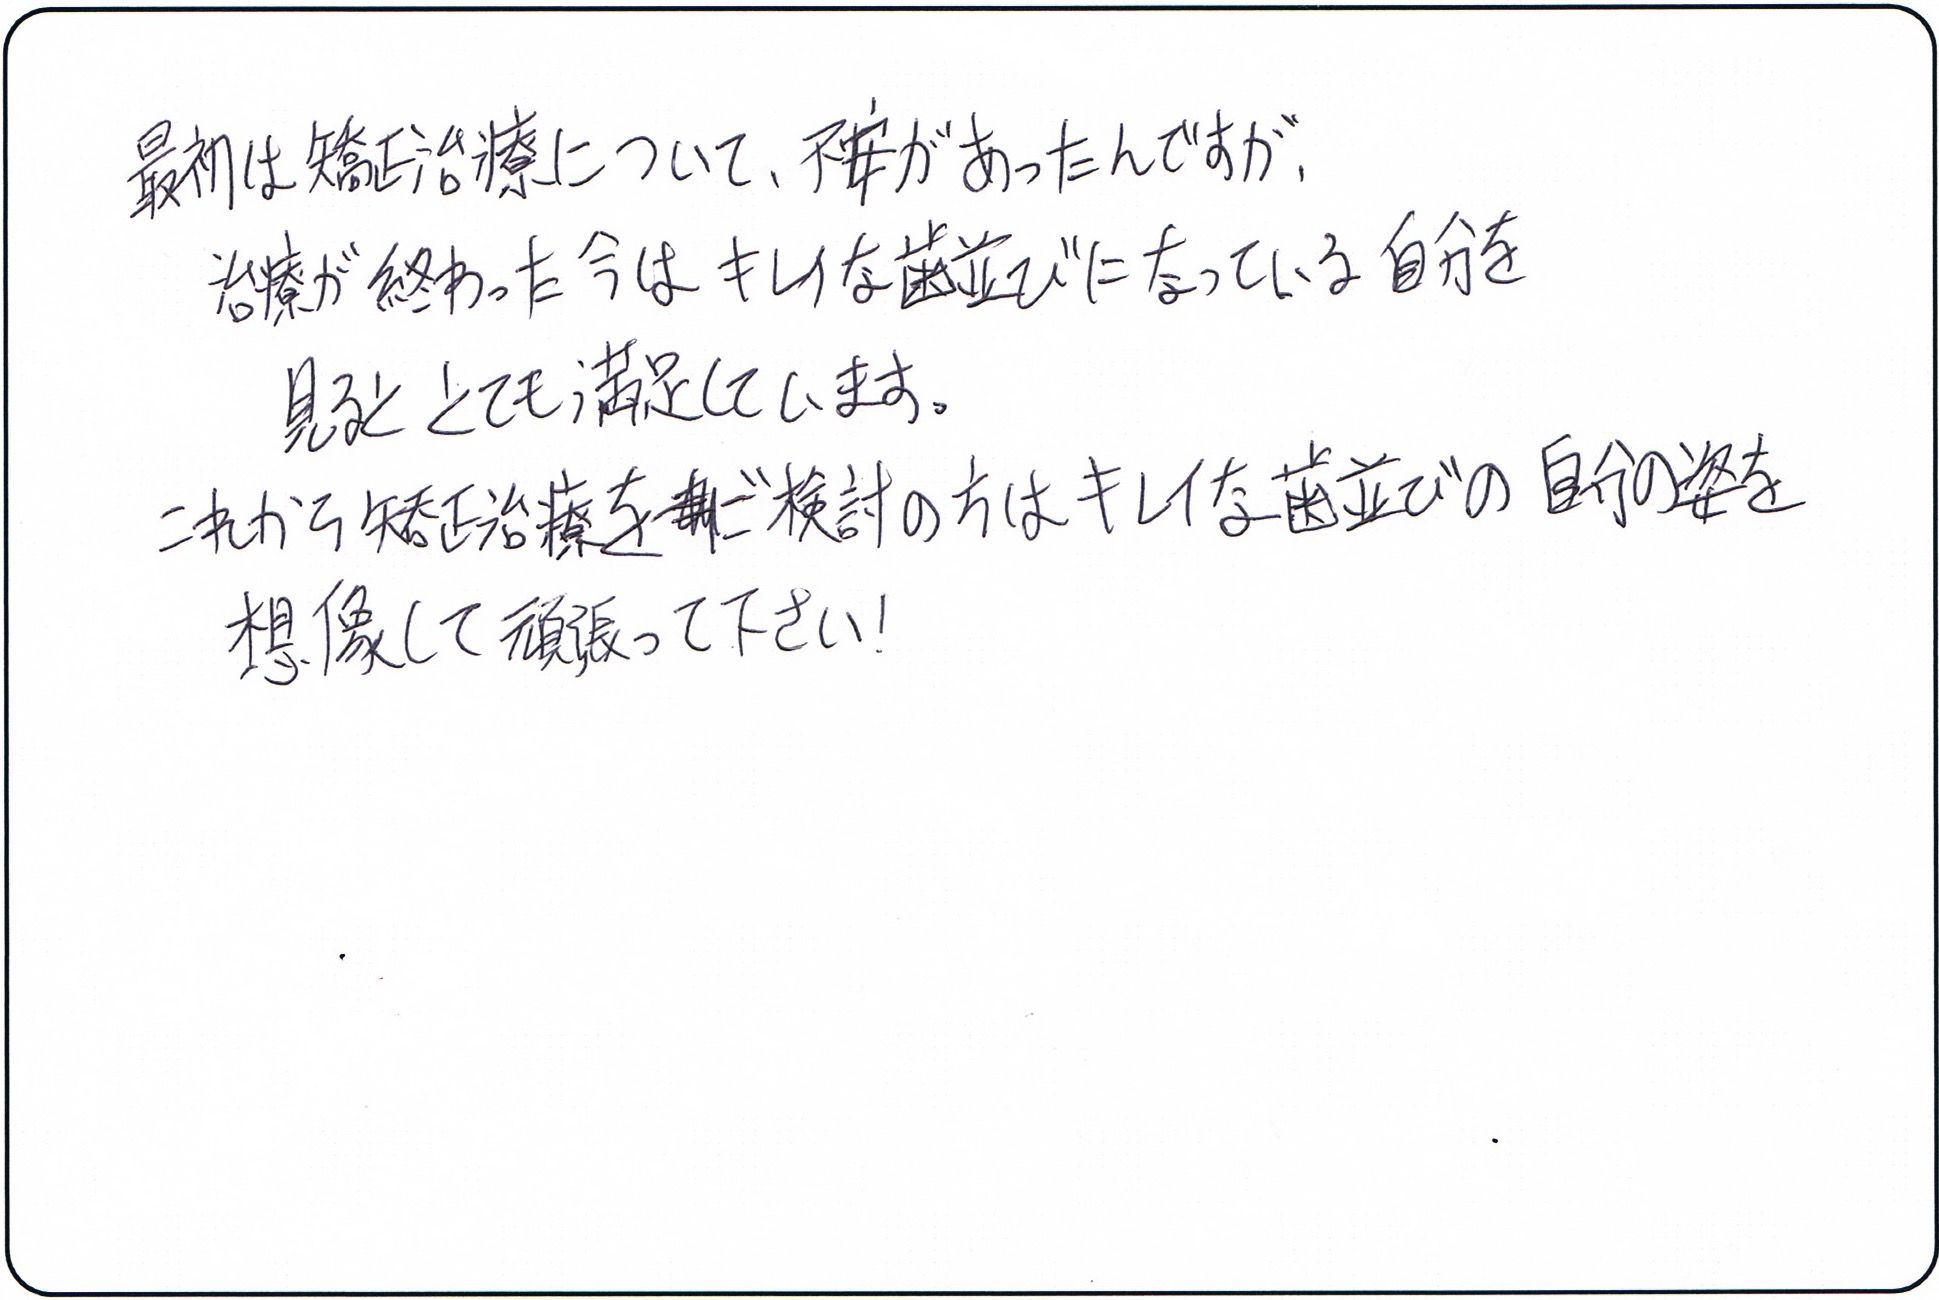 最初は矯正治療について、不安があったんですが、
治療が終わった今はキレイな歯並びになっている自分を
見ると とても満足しています。
これから矯正治療をご検討の方はキレイな歯並びの自分の姿を
想像して頑張って下さい!